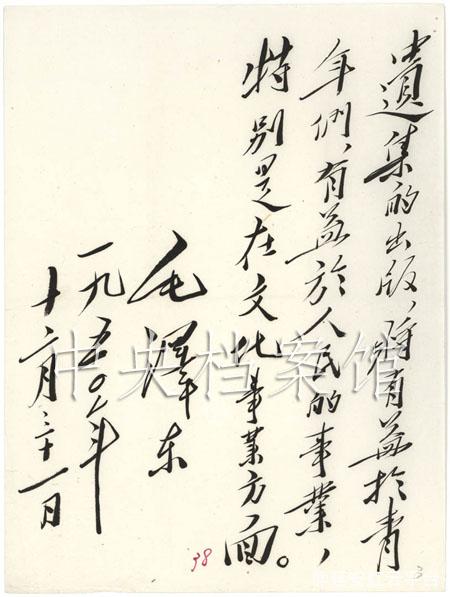 遗集的出版，将有益於青
年們，有益於人民的事業，
特别是在文化事業方面。
毛澤东
一九五〇年
十二月三十一日
中央档案馆
38
3